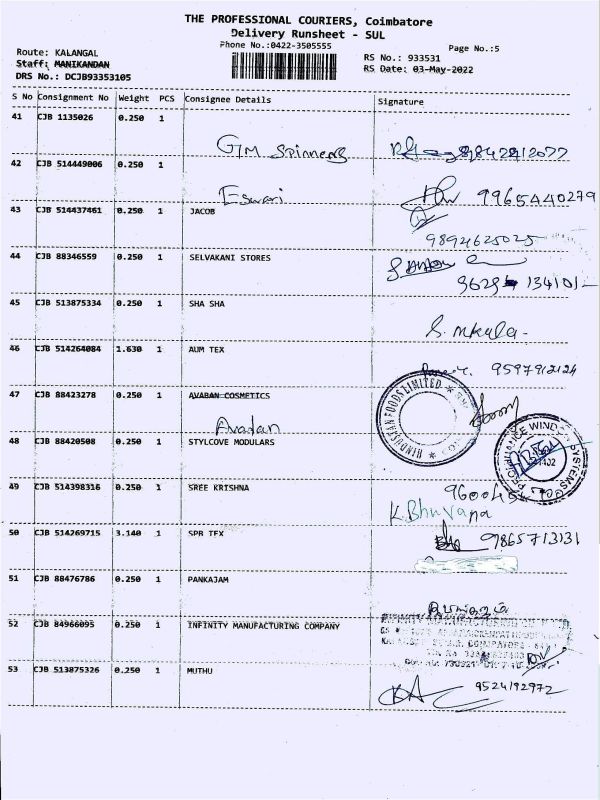 THE PROFESSIONAL COURIERS, Coimbatore
Delivery Runsheet - SUL
Phone No.:0422-3505555
Page No.:5
Route: KALANGAL
RS No.: 933531
Staff: MANIKANDAN
RS Date: 03-May-2022
DRS No.: DCJB93353105
S No Consignment No Weight PCS Consignee Details Signature
41 CJB 1135026 0.250 1
GTM Spinners
42 CJB 514449006 0.250 1
Eswari 9965440279
43 CJB 514437461 0.250 1 JACOB
9894625025
44 CJB 88346559 0.250 1 SELVAKANI STORES
134101
45 CJB 513875334 0.250 1 SHA SHA
S. mkala-
46 CJB 514264084 1.630 1 AUM TEX
9597912124
47 CJB 88423278 0.250 1 AVABAN COSMETICS
HINDUSTAN FOODS LIMITED
Avadan
48 CJB 88420508 0.250 1 STYLCOVE MODULARS
WIND SYSTEMS
49 CJB 514398316 0.250 1 SREE KRISHNA
960045
K. Bhuvana
50 CJB 514269715 3.140 1 SPB TEX
9865713131
51 CJB 88476786 0.250 1 PANKAJAM
52 CJB 84966095 0.250 1 INFINITY MANUFACTURING COMPANY
53 CJB 513875326 0.250 1 MUTHU
9524192972